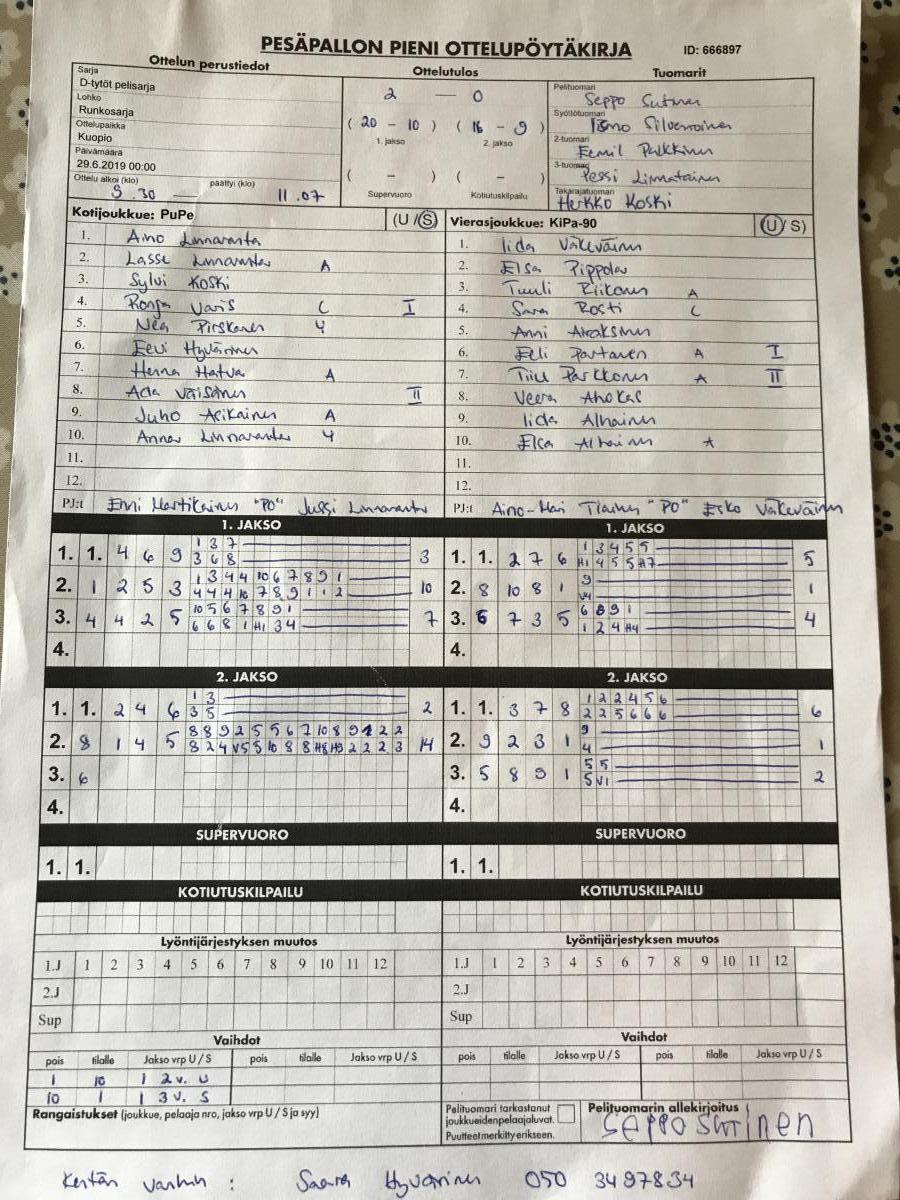 PESÄPALLON PIENI OTTELUPÖYTÄKIRJA ID: 666897
Ottelun perustiedot Ottelutulos Tuomarit
Sarja
D-tytöt pelisarja
Lohko
Runkosarja
Ottelupaikka
Kuopio
Päivämäärä
29.6.2019 00:00
Ottelu alkoi (klo) 9.30 päättyi (klo) 11.07
2 — 0
( 20 - 10 ) ( 16 - 9 )
1. jakso 2. jakso
( - ) ( - )
Supervuoro Kotiutuskilpailu
Pelituomari Seppo Sutinen
Syöttötuomari Silvennoinen
2-tuomari Eemil Pulkkinen
3-tuomari Pessi Linnatainen
Takarajatuomari Heikko Koski
Kotijoukkue: PuPe (U / S)
1. Aino Linnaranta
2. Lasse Linnaranta A
3. Sylvi Koski
4. Ronja Varis C I
5. Nea Pirskanen Y
6. Eevi Hyvärinen
7. Henna Hatva A
8. Ada Väisänen II
9. Juho Asikainen A
10. Anna Linnaranta Y
11.
12.
PJ:t Enni Martikainen "PO" Jussi Linnaranta
Vierasjoukkue: KiPa-90 (U / S)
1. Iida Väkeväinen
2. Elsa Pippola
3. Tuuli Riikonen A
4. Sara Rosti C
5. Anni Airaksinen
6. Elli Partanen A I
7. Tiiu Parkkonen A II
8. Veera Ahokas
9. Iida Alhainen
10. Elsa Alhainen A
11.
12.
PJ:t Aino-Mari "PO" Esko Väkeväinen
1. JAKSO
1. 1. 4 6 9 1 3 7 3
3 6 8
2. 1 2 5 3 1 3 4 4 10 6 7 8 9 1 10
4 4 4 10 7 8 9 1 1 2
3. 4 4 2 5 10 5 6 7 8 9 1 7
6 6 8 1 H1 3 4
4.
1. JAKSO
1. 1. 2 7 6 1 3 4 5 5 5
H1 4 5 5 H7
2. 8 10 8 1 9 1
V4
3. 6 7 3 5 6 8 9 1 4
1 2 4 H4
4.
2. JAKSO
1. 1. 2 4 6 1 3 2
3 5
2. 8 1 4 5 8 8 9 2 5 5 6 7 10 8 9 1 2 2 14
8 2 4 V5 5 10 8 8 H8 H9 2 2 2 3
3. 6
4.
2. JAKSO
1. 1. 3 7 8 1 2 2 4 5 6 6
2 2 5 6 6 6
2. 9 2 3 1 9 1
4
3. 5 8 9 1 5 5 2
5 V1
4.
SUPERVUORO SUPERVUORO
1. 1. 1. 1.
KOTIUTUSKILPAILU KOTIUTUSKILPAILU
Lyöntijärjestyksen muutos Lyöntijärjestyksen muutos
1.J 1 2 3 4 5 6 7 8 9 10 11 12 1.J 1 2 3 4 5 6 7 8 9 10 11 12
2.J 2.J
Sup Sup
Vaihdot Vaihdot
pois tilalle Jakso vrp U / S pois tilalle Jakso vrp U / S pois tilalle Jakso vrp U / S pois tilalle Jakso vrp U / S
1 10 1 2 v. U
10 1 1 3 v. S
Rangaistukset (joukkue, pelaaja nro, jakso vrp U / S ja syy)
Pelituomari tarkastanut
joukkueidenpelaajaluvat.
Puutteet merkitty erikseen.
Pelituomarin allekirjoitus
SEPPO SUTINEN
Kentän vanhin : Saara Hyvärinen 050 3497834